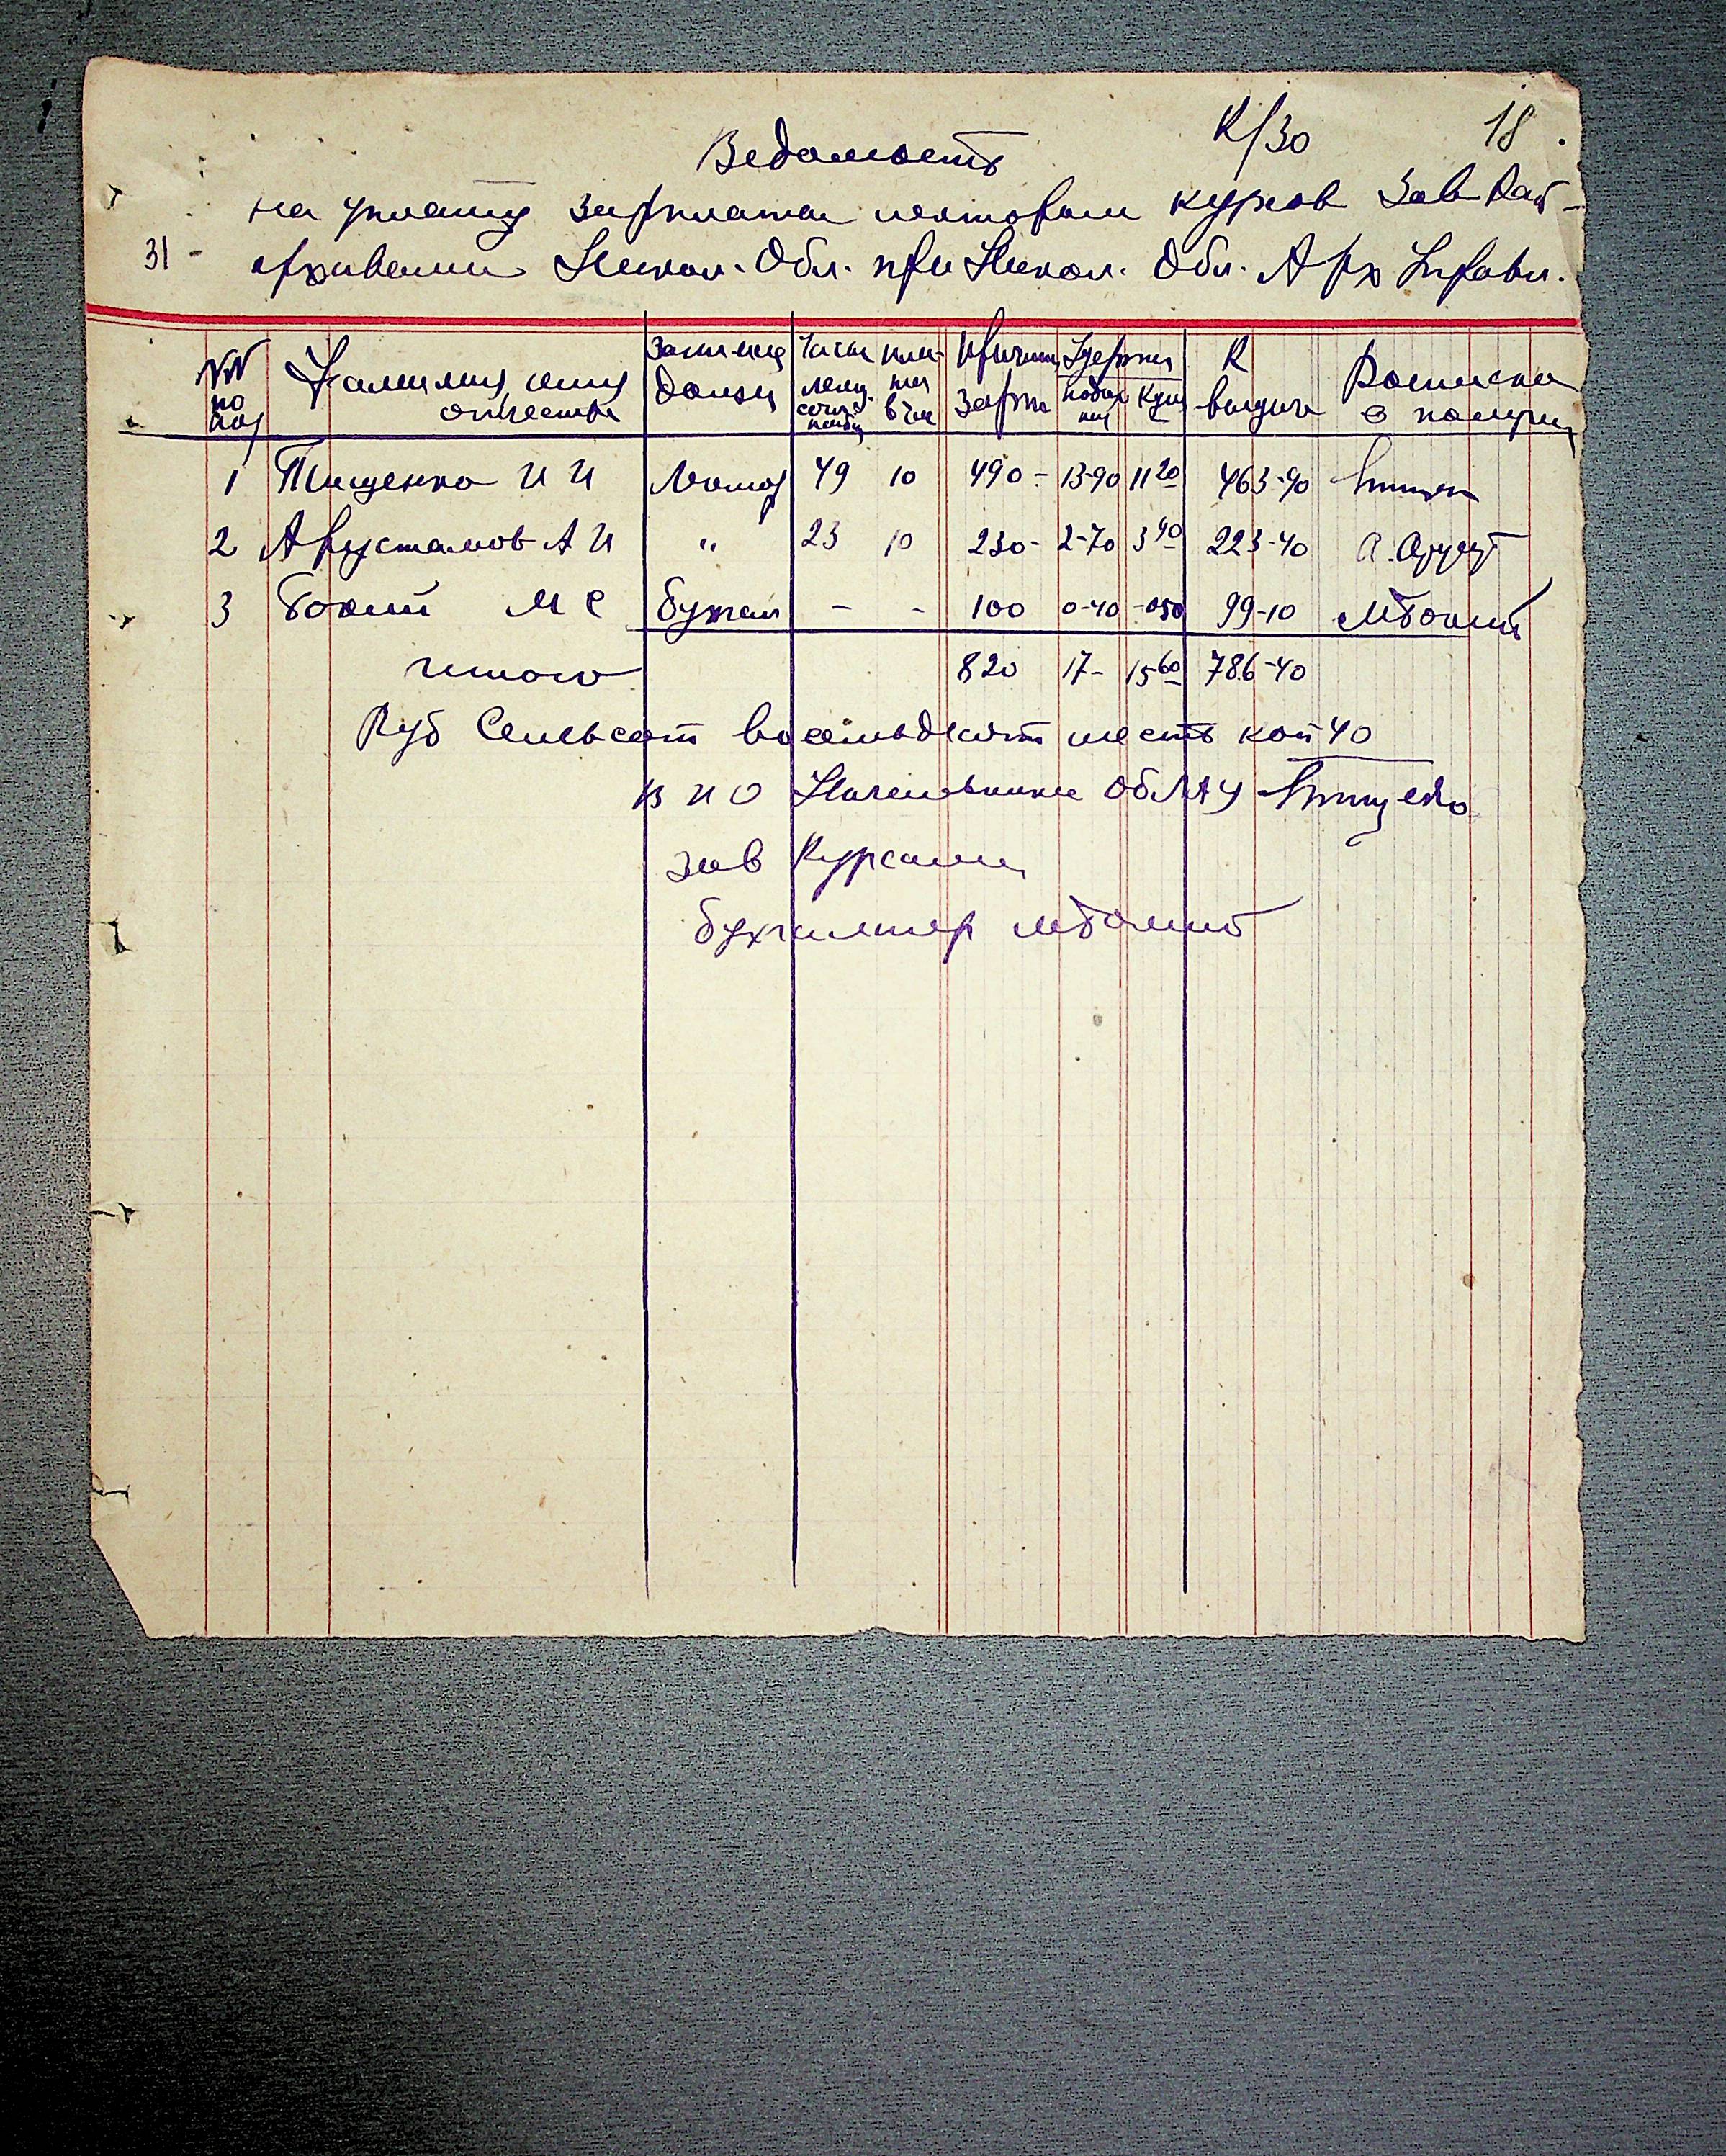 К/30 18.
Ведомость
на уплату зарплаты лекторам курсов Зав Рай-
31 - архивами Никол. Обл. при Никол. Обл. Арх Управл.
№№ по пор Фамилия имя отчество Занимаем должн Часы лекц. пла- та в час Причит зарпл Удержан подох ный К выдаче Расписка в получен
1 Тищенко И И Лектор 49 10 490- 13-90 11 20 463-90
2 Арустамов А И " 23 10 230- 2-70 3 90 223-40 А. Аруст
3 Бокий М С бухгал - - 100 0-40 -0 50 99-10 МБокий
итого 820 17- 15 60 786-40
Руб Семьсот восемьдесят шесть коп 40
в и о Начальника ОблАУ Тищенко
Зав Курсами
бухгалтер МБокий